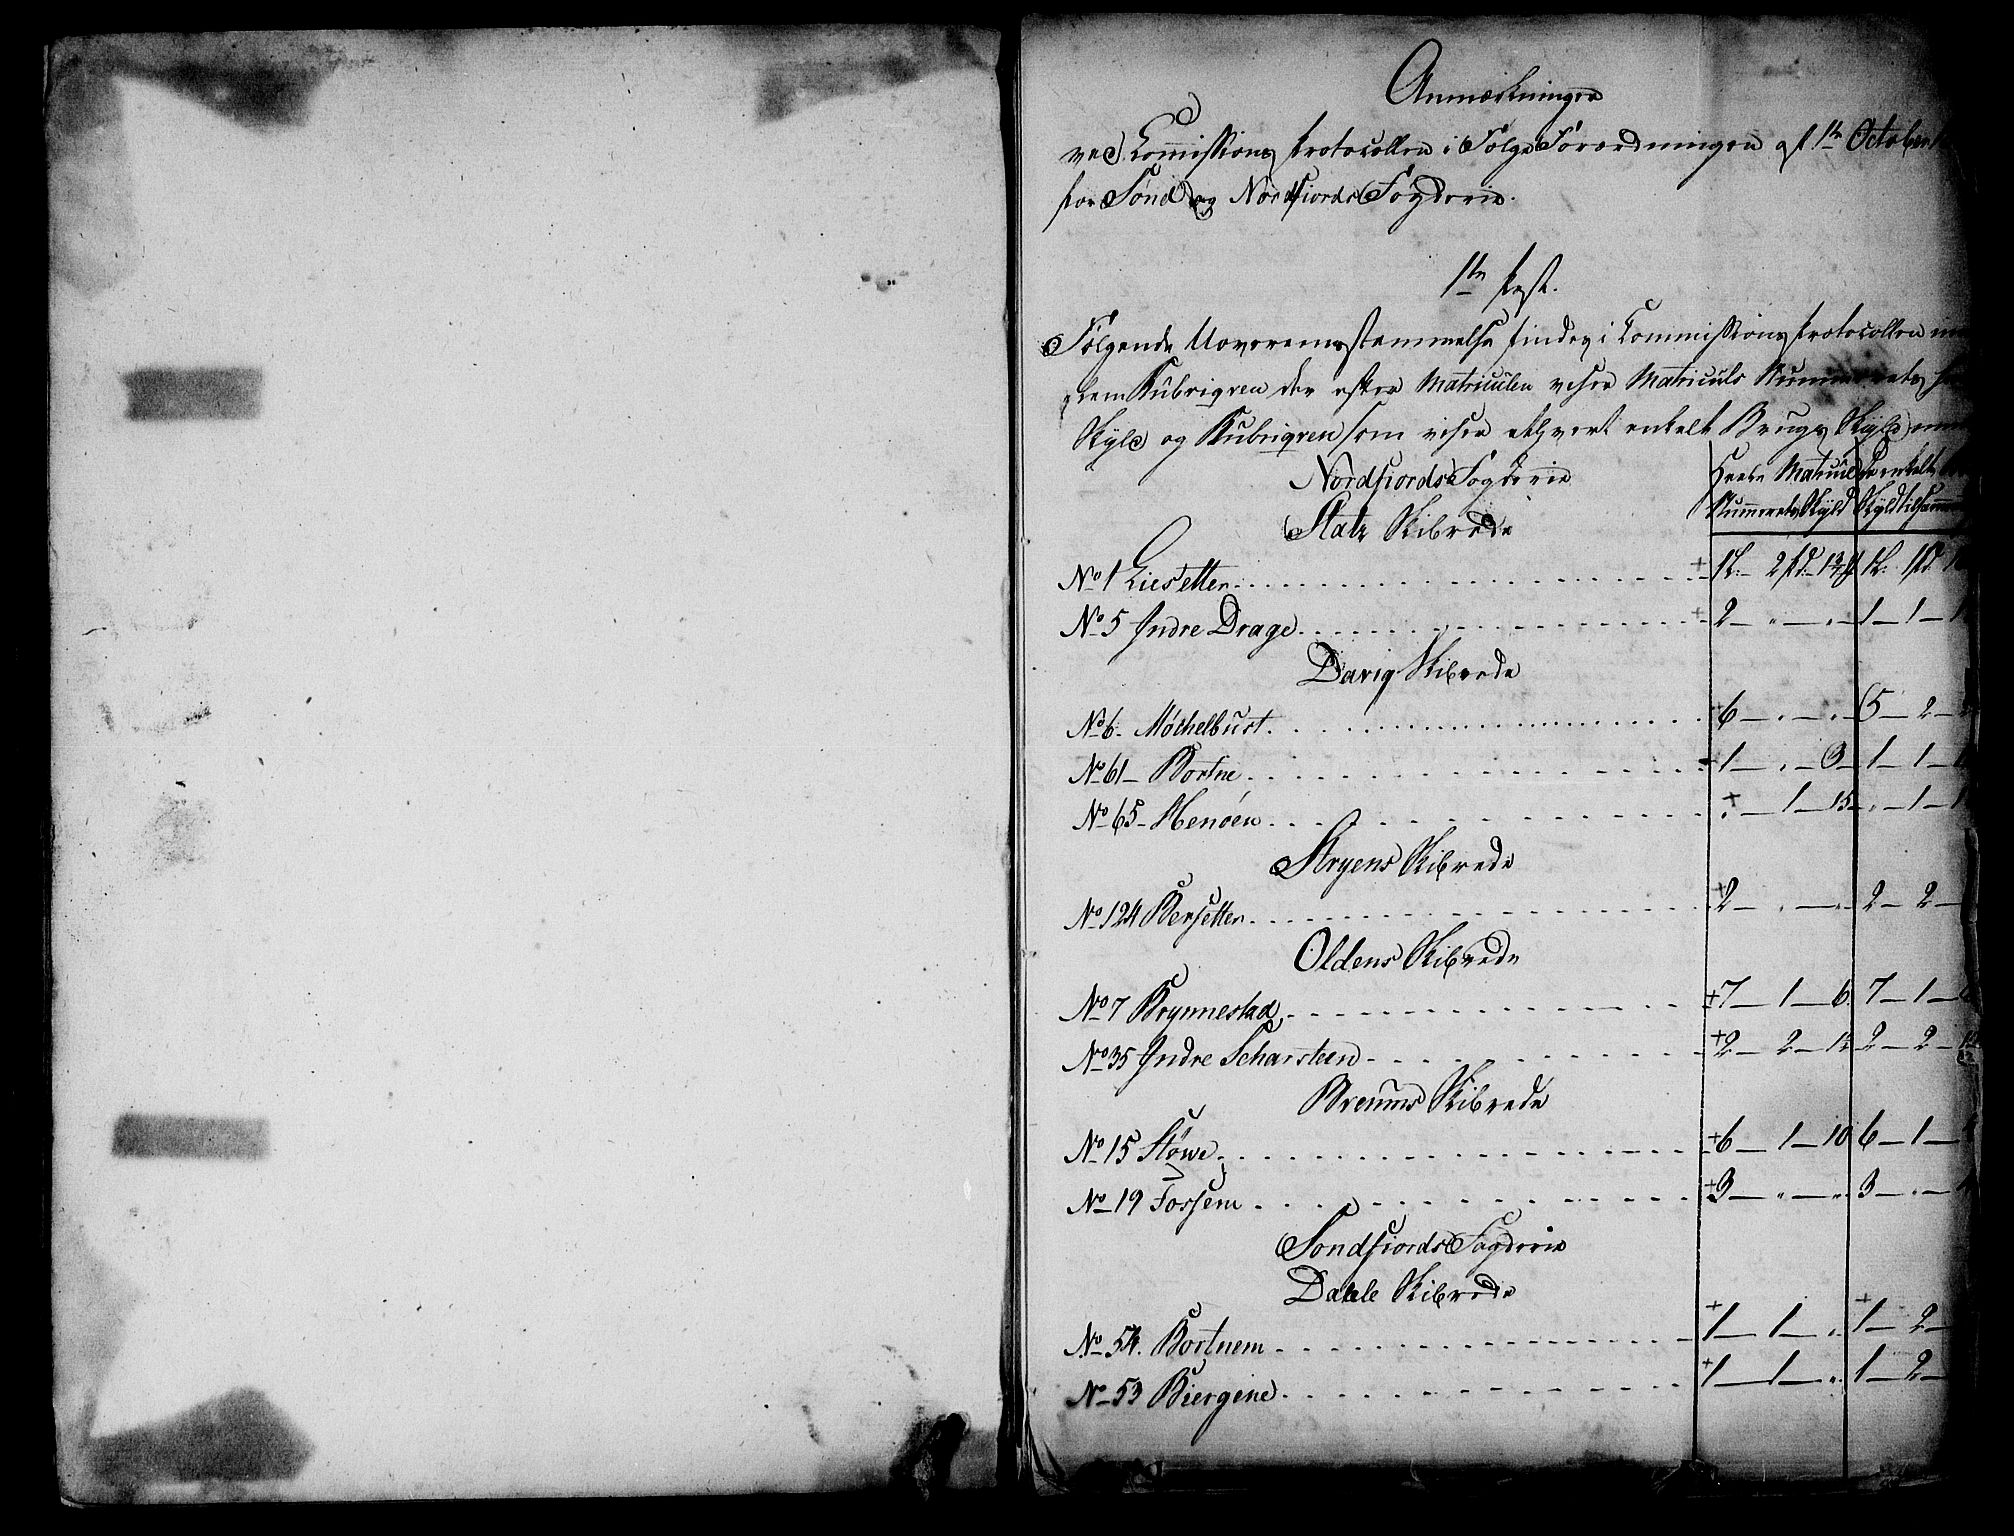 Anmærkninger
ved Comissions Protocollen i Følge Forordningen af 1te October
for Sønd og Nordfiords Fogderie.
1te Post.
Følgende Uoverensstemmelse findes i Commissions Protocollen
Rubriqven der efter Matriculen viser Matriculs Nummerets
Skyld og Rubriqven som viser ethvert enkelt Brugs Skyld
Nordfiords Fogderie
Heele Matricul De enkelte
Nummerets Skyld Skyld tilsammen
Stats Skibrede
No 1 Liesetter + 1L. 2pd. 13 1L. 1pd
No 5 Indre Drage + 2 — „ — „ 1 — 1 —
Davig Skibrede
No 6. Møchelbust + 6 — „ — „ 5 — 2 —
No 61 — Bortne + 1 — „ — 3 — 1 — 1 —
No 65 — Henøen + „ 1 — 15 — „ — 1 —
Stryens Skibrede
No 124 Bersetter + 2 — „ — „ 2 — 2 —
Oldens Skibrede
No 7 Brynnestad + 7 — 1 — 6 7 — 1 —
No 35 Indre Scharsteen + 2 — 2 — 12 2 — 2 —
Breums Skibrede
No 15 Støwe + 6 — 1 — 10 6 — 1 —
No 19 Fossem + 3 — „ — „ 3 — „ —
Sondfiords Fogderie
Dahle Skibrede
No 54. Bortnem + 1 — 1 — „ + 1 — 2 —
No 53 Biergine + 1 — 1 — „ 1 — 2 —